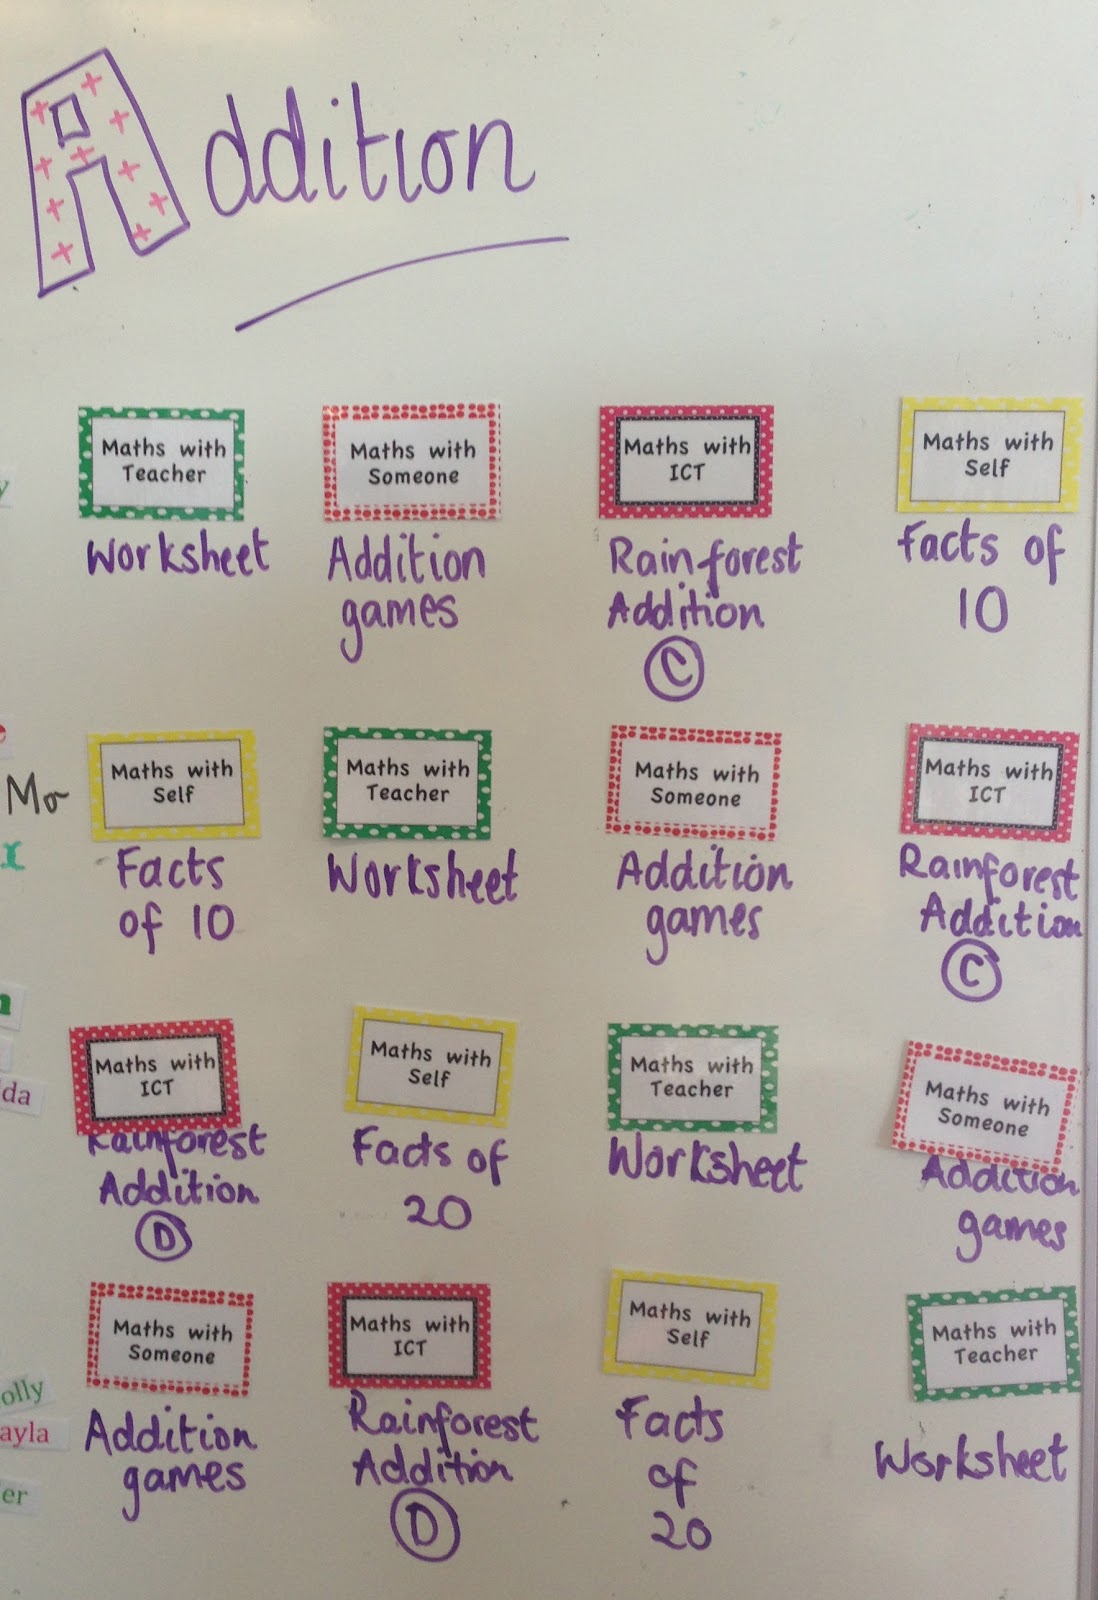 Addition
Maths with
Teacher
Worksheet
Maths with
Someone
Addition
games
Maths with
ICT
Rainforest
Addition
C
Maths with
Self
Facts of
10
Mo
Maths with
Self
Facts
of 10
Maths with
Teacher
Worksheet
Maths with
Someone
Addition
games
Maths with
ICT
Rainforest
Addition
C
da
Maths with
ICT
Rainforest
Addition
D
Maths with
Self
Facts of
20
Maths with
Teacher
Worksheet
Maths with
Someone
Addition
games
olly
ayla
er
Maths with
Someone
Addition
games
Maths with
ICT
Rainforest
Addition
D
Maths with
Self
Facts
of
20
Maths with
Teacher
Worksheet